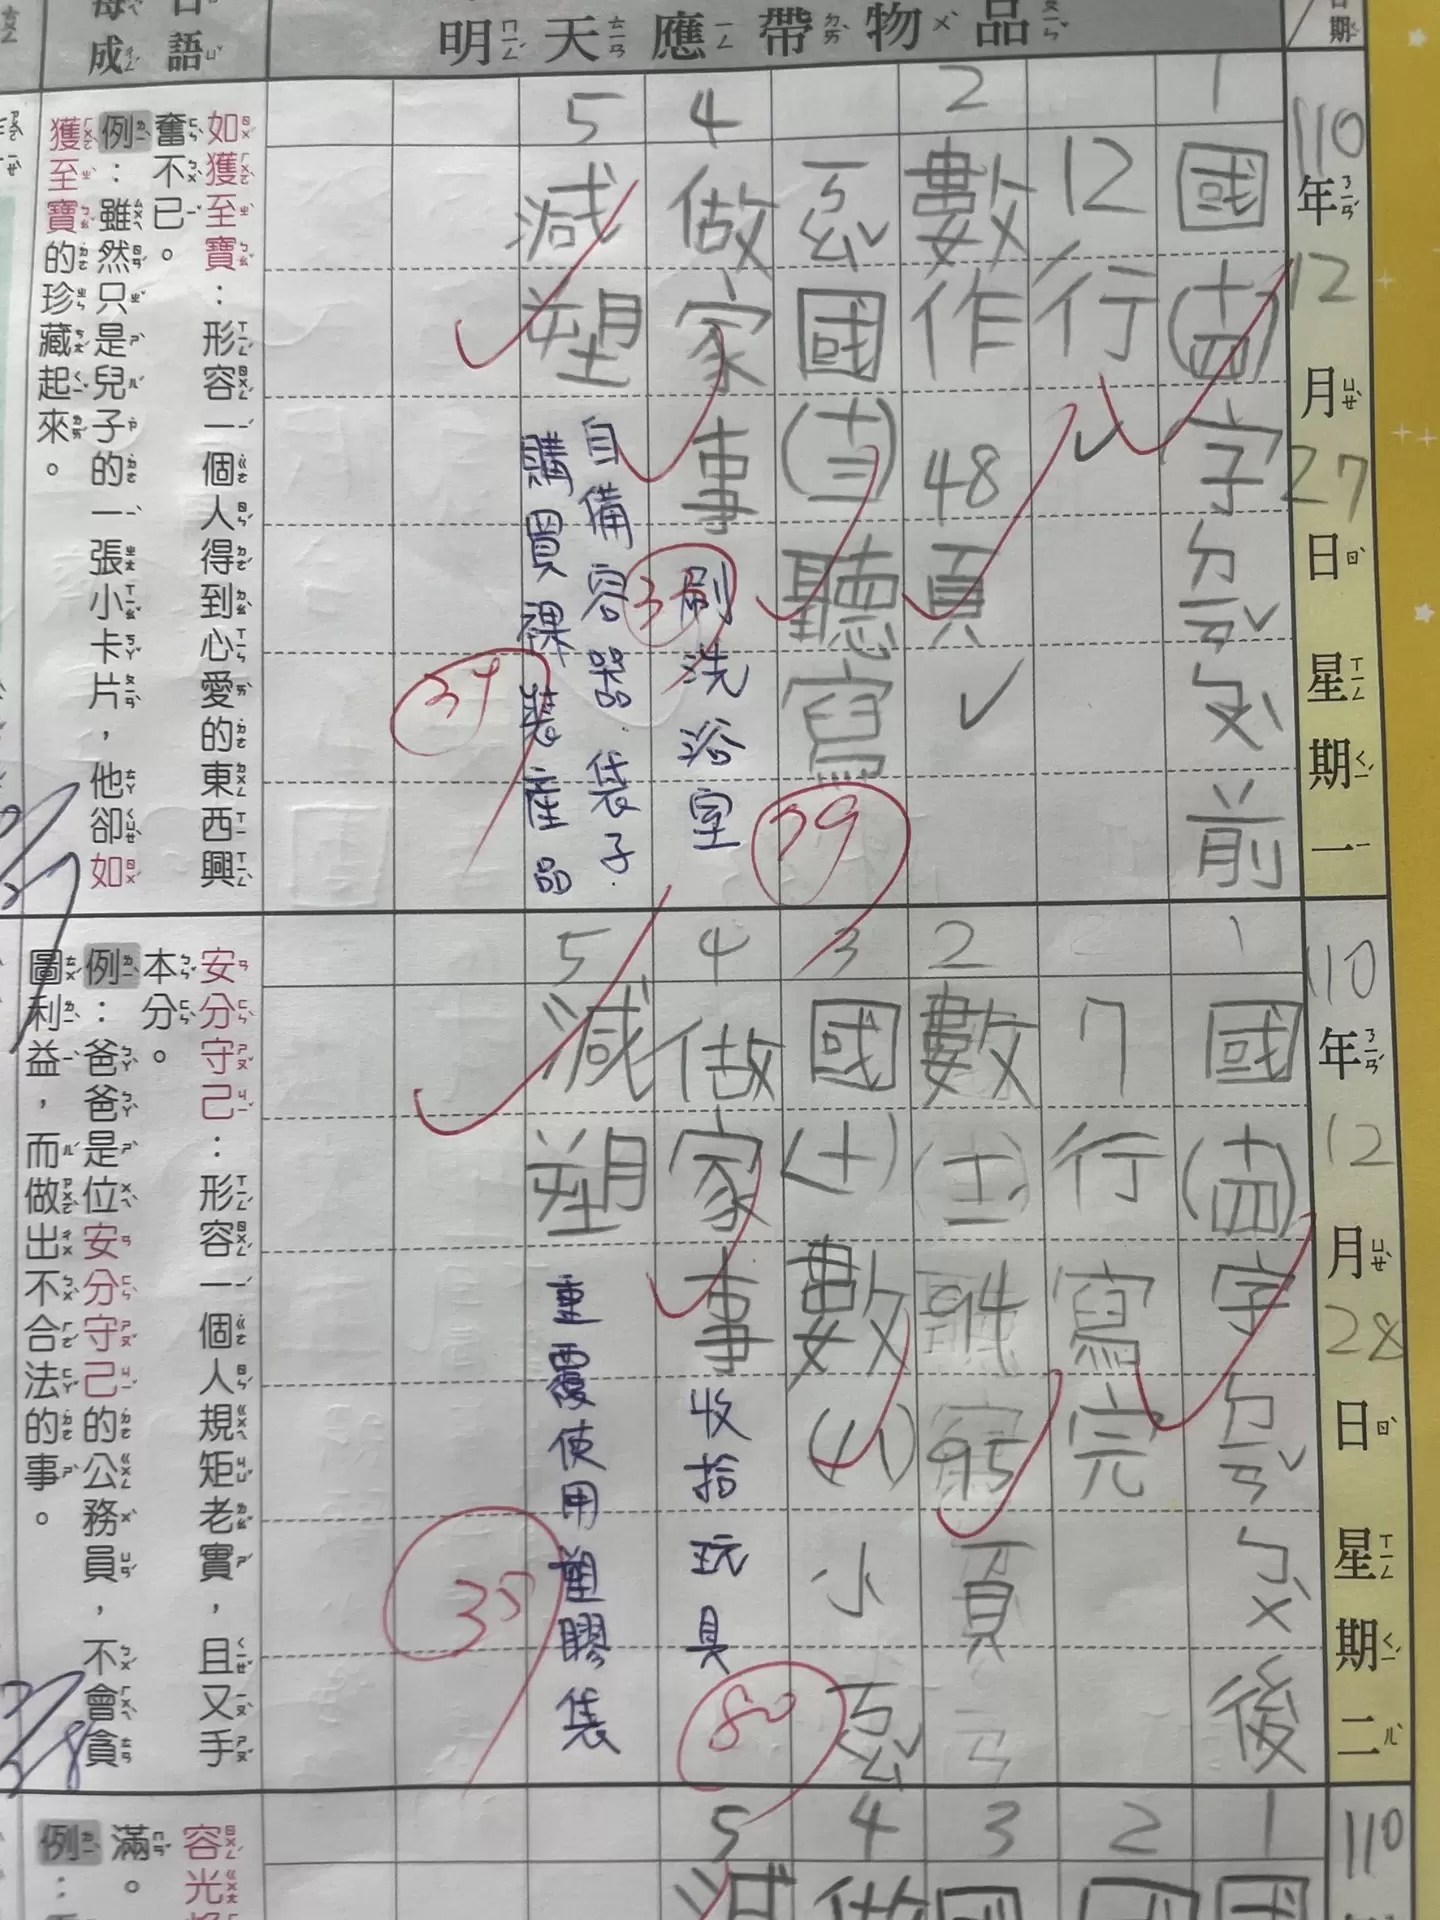 明天應帶物品
日期
110年12月27日星期一
1
國(十四)字ㄅㄣˇㄆ前
12行✓
2
數作48頁✓
ㄎㄠˇ國(十三)聽寫
79
4
做家事
刷洗浴室
5
減塑
自備容器.袋子.
購買裸裝產品
如獲至寶：形容一個人得到心愛的東西興
奮不已。
例：雖然只是兒子的一張小卡片，他卻如
獲至寶的珍藏起來。
110年12月28日星期二
1
國(十四)字ㄅㄣˇㄆ後
7行寫完
2
數
94
95頁
3
國(十)數(八)小ㄎㄠˇ
80
4
做家事
收拾玩具
5
減塑
重覆使用塑膠袋
35
安分守己：形容一個人規矩老實，且又手
本分。
例：爸爸是位安分守己的公務員，不會貪
圖利益，而做出不合法的事。
110
1
國
2
國
3
國
4
做
5
減
容光
滿。
例：